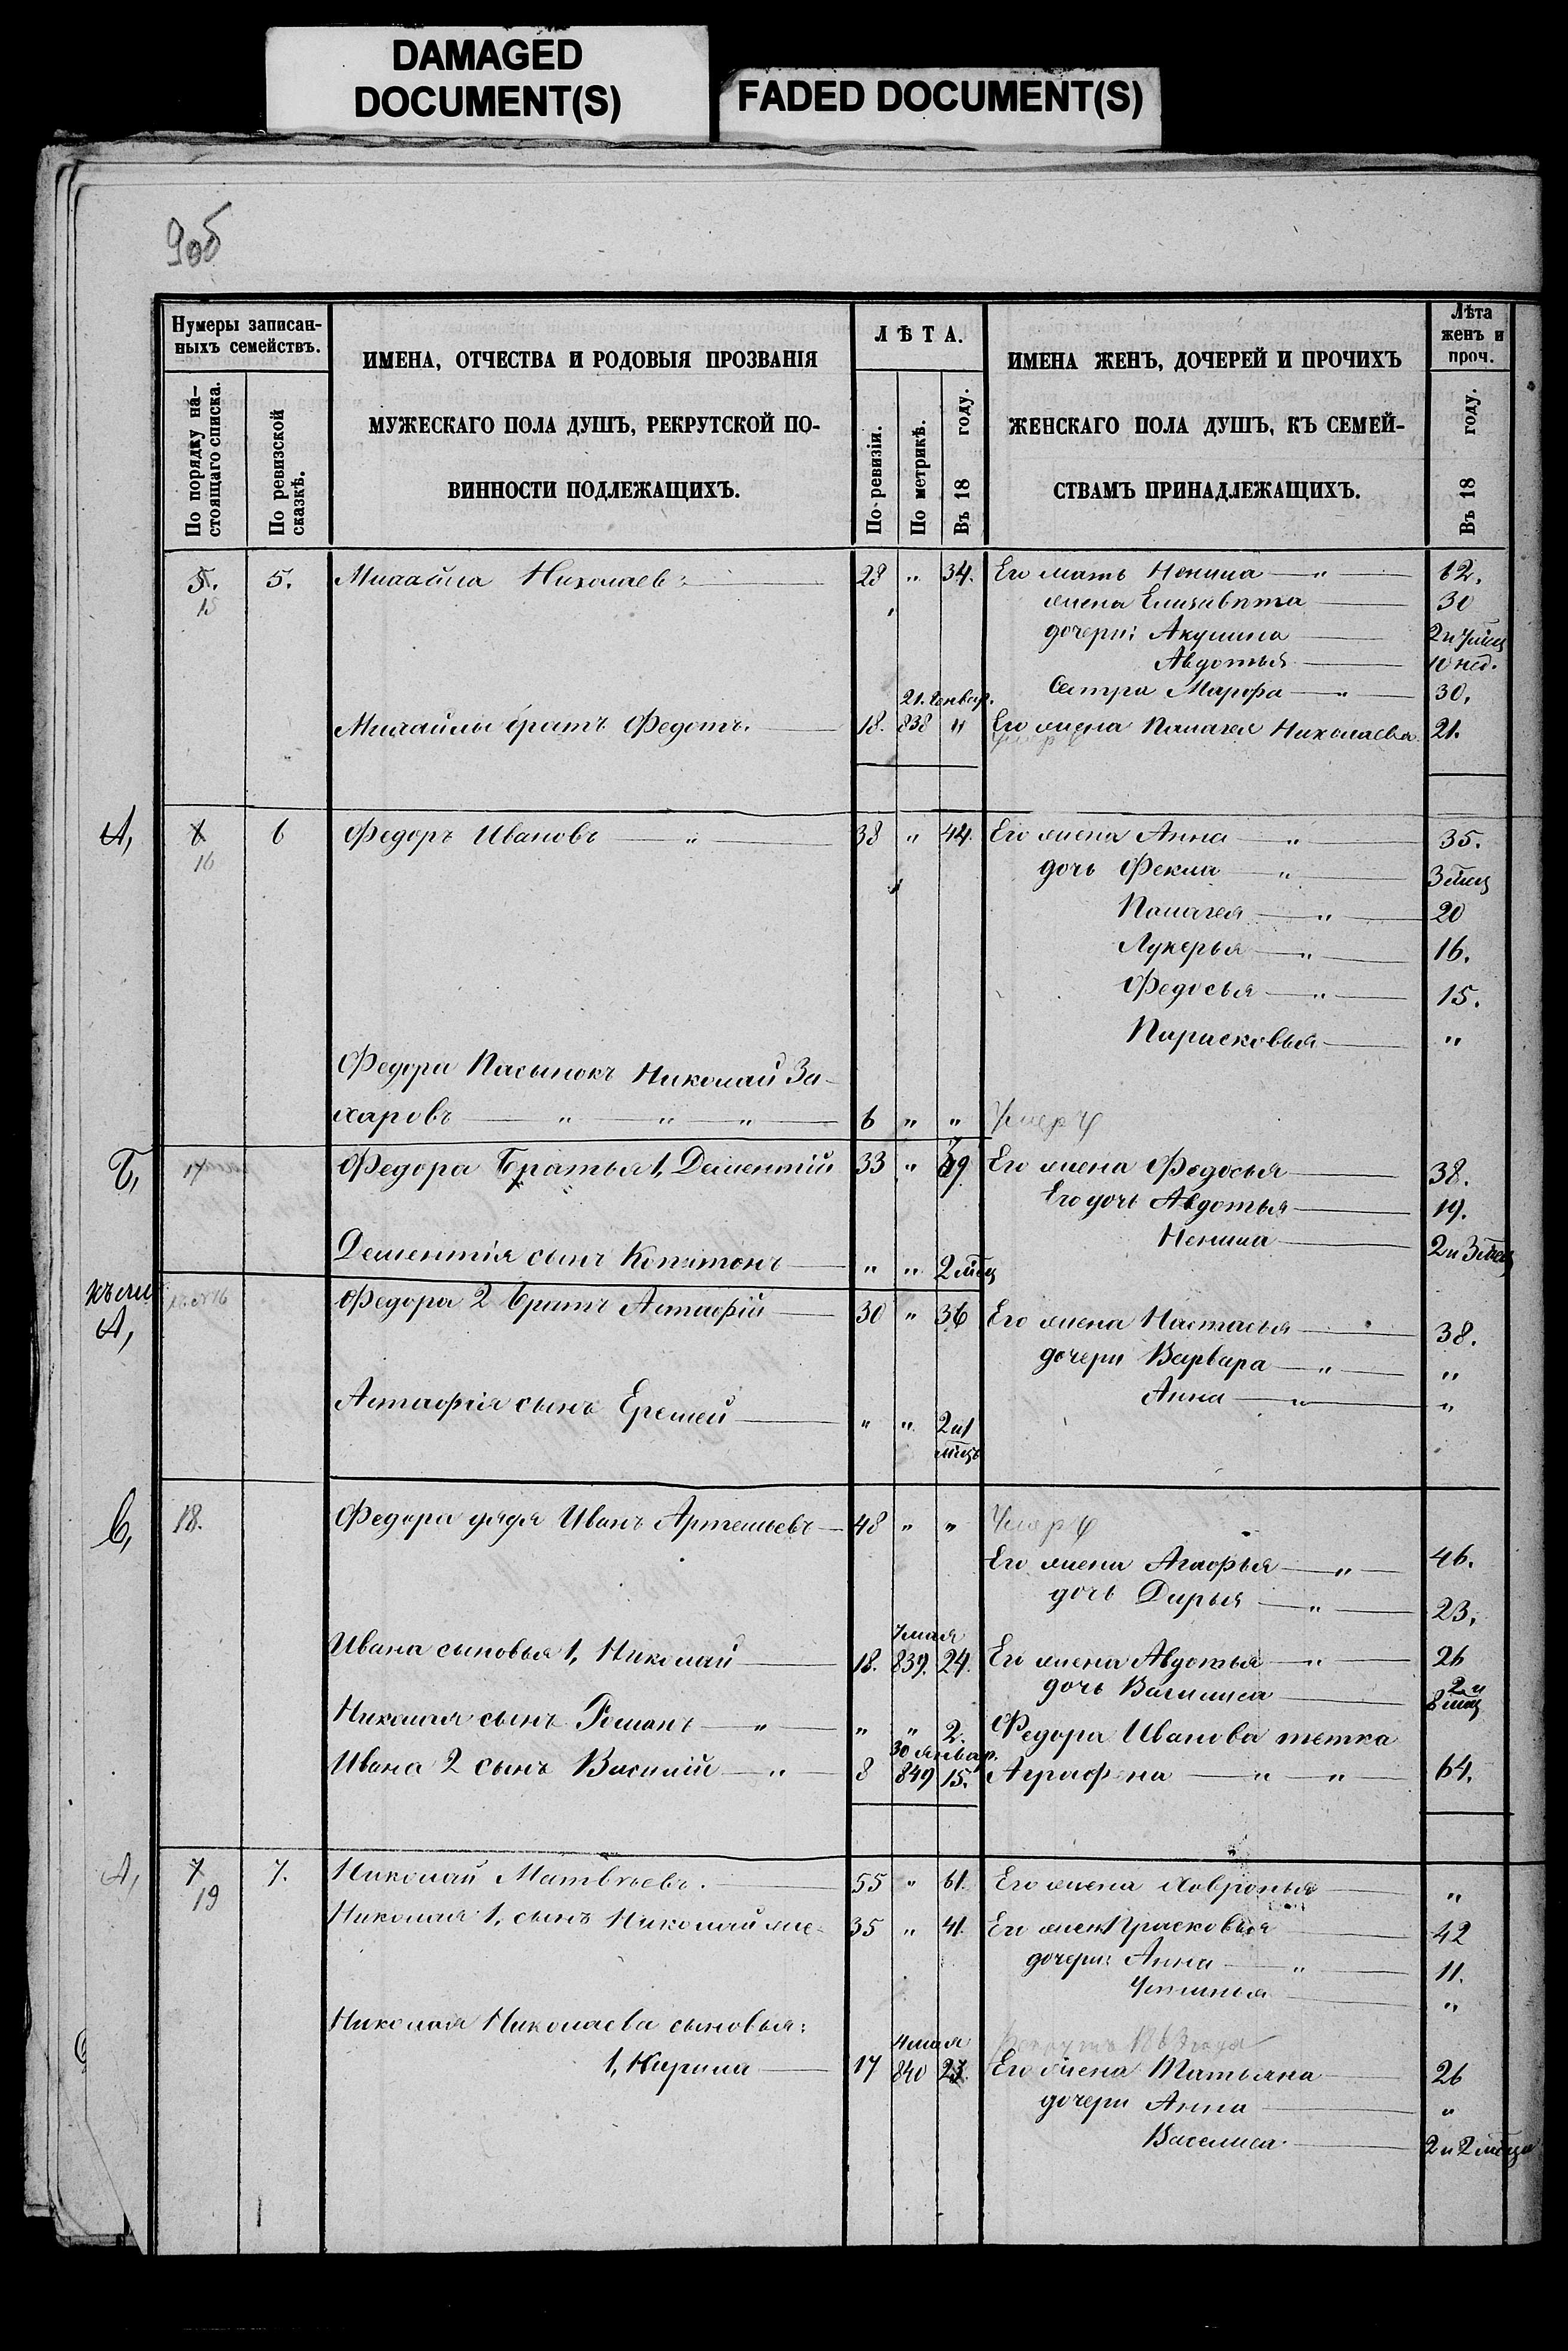 DAMAGED
DOCUMENT(S)
FADED DOCUMENT(S)
9об
Нумеры записан-
ныхъ семействъ.
По порядку на-
стоящаго списка.
По ревизской
сказкѣ.
ИМЕНА, ОТЧЕСТВА И РОДОВЫЯ ПРОЗВАНІЯ
МУЖЕСКАГО ПОЛА ДУШЪ, РЕКРУТСКОЙ ПО-
ВИННОСТИ ПОДЛЕЖАЩИХЪ.
ЛѢТА.
По ревизіи.
По метрикѣ.
Въ 18 году.
ИМЕНА ЖЕНЪ, ДОЧЕРЕЙ И ПРОЧИХЪ
ЖЕНСКАГО ПОЛА ДУШЪ, КЪ СЕМЕЙ-
СТВАМЪ ПРИНАДЛЕЖАЩИХЪ.
Лѣта
женъ и
проч.
Въ 18 году.
5. 5. Михайла Николаев: 28 " 34. Его мать Ненила " 62.
15 жена Елизавѣта 30
дочери: Акулина 2 и 7 мѣс
Авдотья 10 нед.
Сестра Марфа " 30.
21. Генвар.
Михайлы братъ Федотъ. 18. 838 " Его жена Палагея Николаева 21.
А, 6 6 Федоръ Ивановъ " 38 " 44. Его жена Анна " 35.
16 дочь Фекла " 3 мѣс
Палагея " 20
Лукерья " 16.
Федосья " 15.
Парасковья "
Федора Пасынокъ Николай За-
харовъ " " " 6 " " Умеръ
Б, 17 Федора Братья 1, Дементій 33 " 39 Его жена Федосья 38.
Его дочь Авдотья 19.
Ненила 2 и 3 мѣс
Дементія сынъ Капитонъ " " 2 мѣс
А, Федора 2 Братъ Астафій 30 " 36 Его жена Настасья 38.
дочери Варвара " "
Анна " "
Астафія сынъ Еремей " " 2 и 1
мѣсц
В, 18. Федора дядя Иванъ Артемьевъ 48 " " Умеръ
Его жена Агафья " 46.
дочь Дарья " 23.
7 мая
Ивана сыновья 1, Николай 18. 839. 24. Его жена Авдотья " 26
дочь Василиса 2 и
8 мѣс
Николая сынъ Романъ " " " 2. Федора Иванова тетка
30 январ.
Ивана 2 сынъ Василій " 8 849 15. Аграфена " " 64.
А, 7 7. Николай Матвѣевъ. 55 " 61. Его жена Хавронья "
19
Николая 1, сынъ Николай же 35 " 41. Его жена Прасковья 42
дочери: Анна " 11.
Устинья "
Николая Николаева сыновья:
4 мая Рекрутъ 1863 года
1, Кирила 17 840 23. Его жена Татьяна 26
дочери Анна "
Василиса 2 и 2 мѣсца